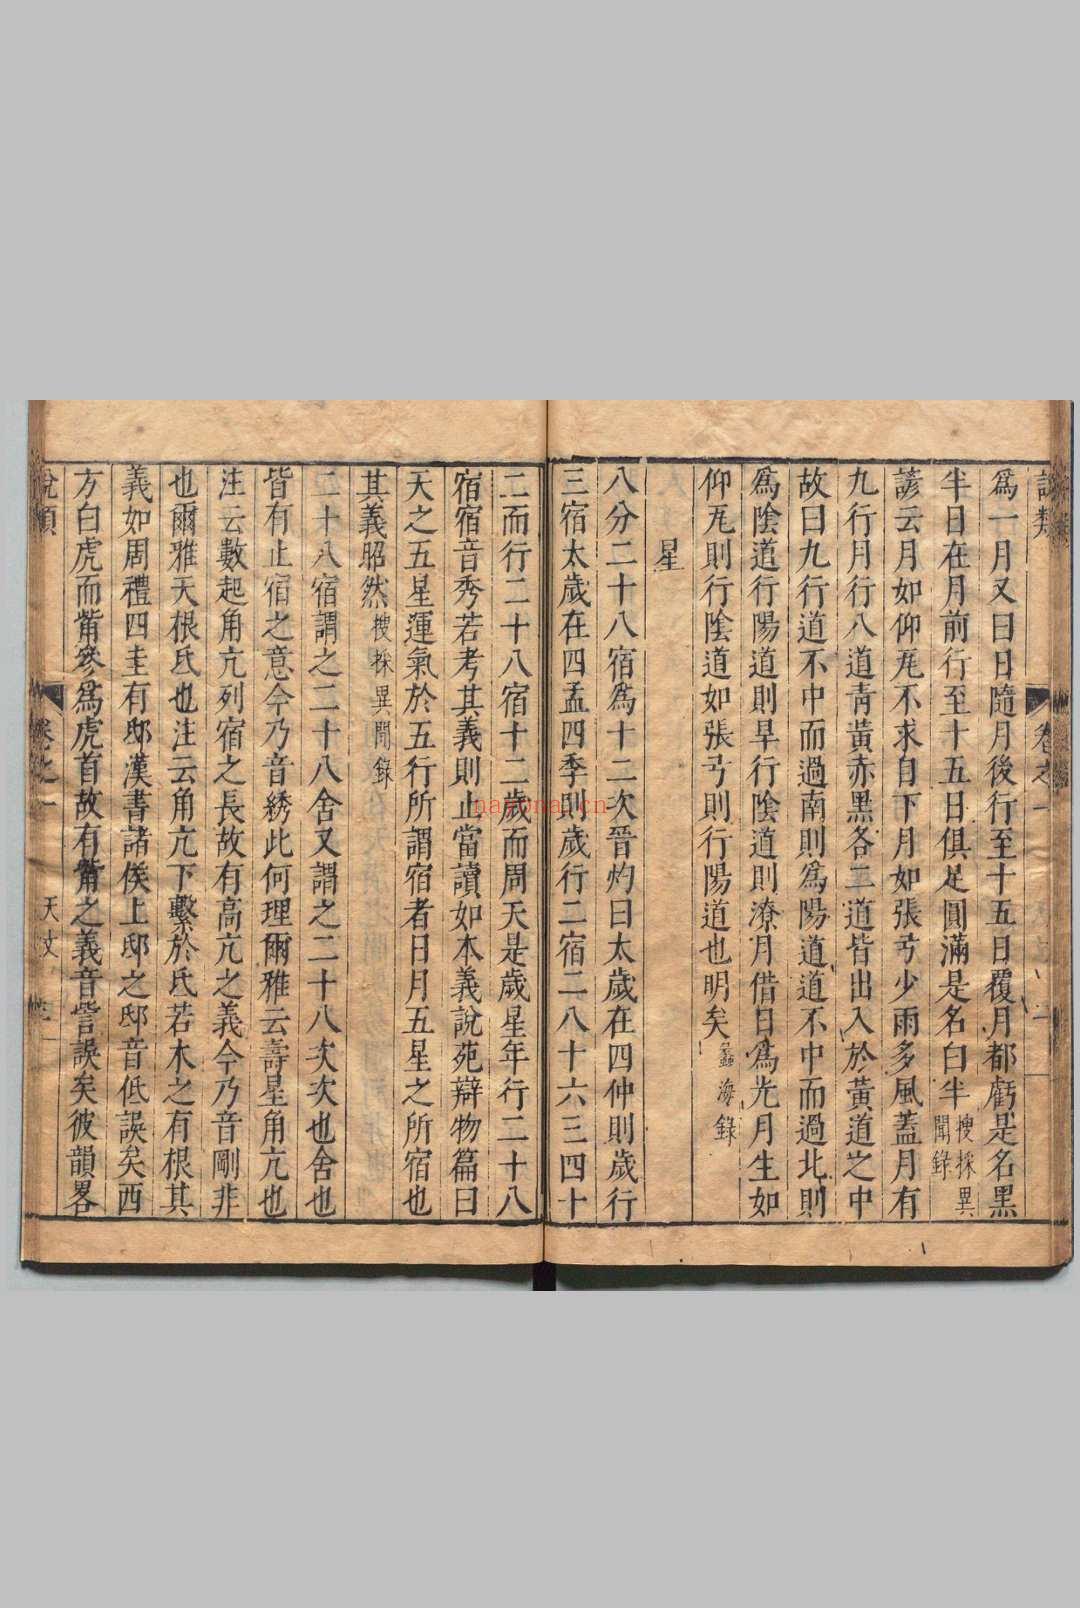 說類
卷之一
二
爲一月又曰日隨月後行至十五日覆月都虧是名黑
半日在月前行至十五日俱足圓滿是名白半搜採異聞錄
諺云月如仰瓦不求自下月如張弓少雨多風蓋月有
九行月行八道靑黃赤黑各二道皆出入於黃道之中
故曰九行道不中而過南則爲陽道道不中而過北則
爲陰道行陽道則旱行陰道則潦月借日爲光月生如
仰瓦則行陰道如張弓則行陽道也明矣蠡海錄
星
八分二十八宿爲十二次晉灼曰太歲在四仲則歲行
三宿太歲在四孟四季則歲行二宿二八十六三四十
二而行二十八宿十二歲而周天是歲星年行二十八
宿宿音秀若考其義則止當讀如本義說苑辯物篇曰
天之五星運氣於五行所謂宿者日月五星之所宿也
其義昭然搜採異聞錄
二十八宿謂之二十八舍又謂之二十八次次也舍也
皆有止宿之意今乃音綉此何理爾雅云壽星角亢也
注云數起角亢列宿之長故有高亢之義今乃音剛非
也爾雅天根氐也注云角亢下繫於氐若木之有根其
義如周禮四圭有邸漢書諸侯上邸之邸音低誤矣西
方白虎而觜參爲虎首故有觜之義音訾誤矣彼韻畧
說類
卷之一
天文
三
nayona.cn